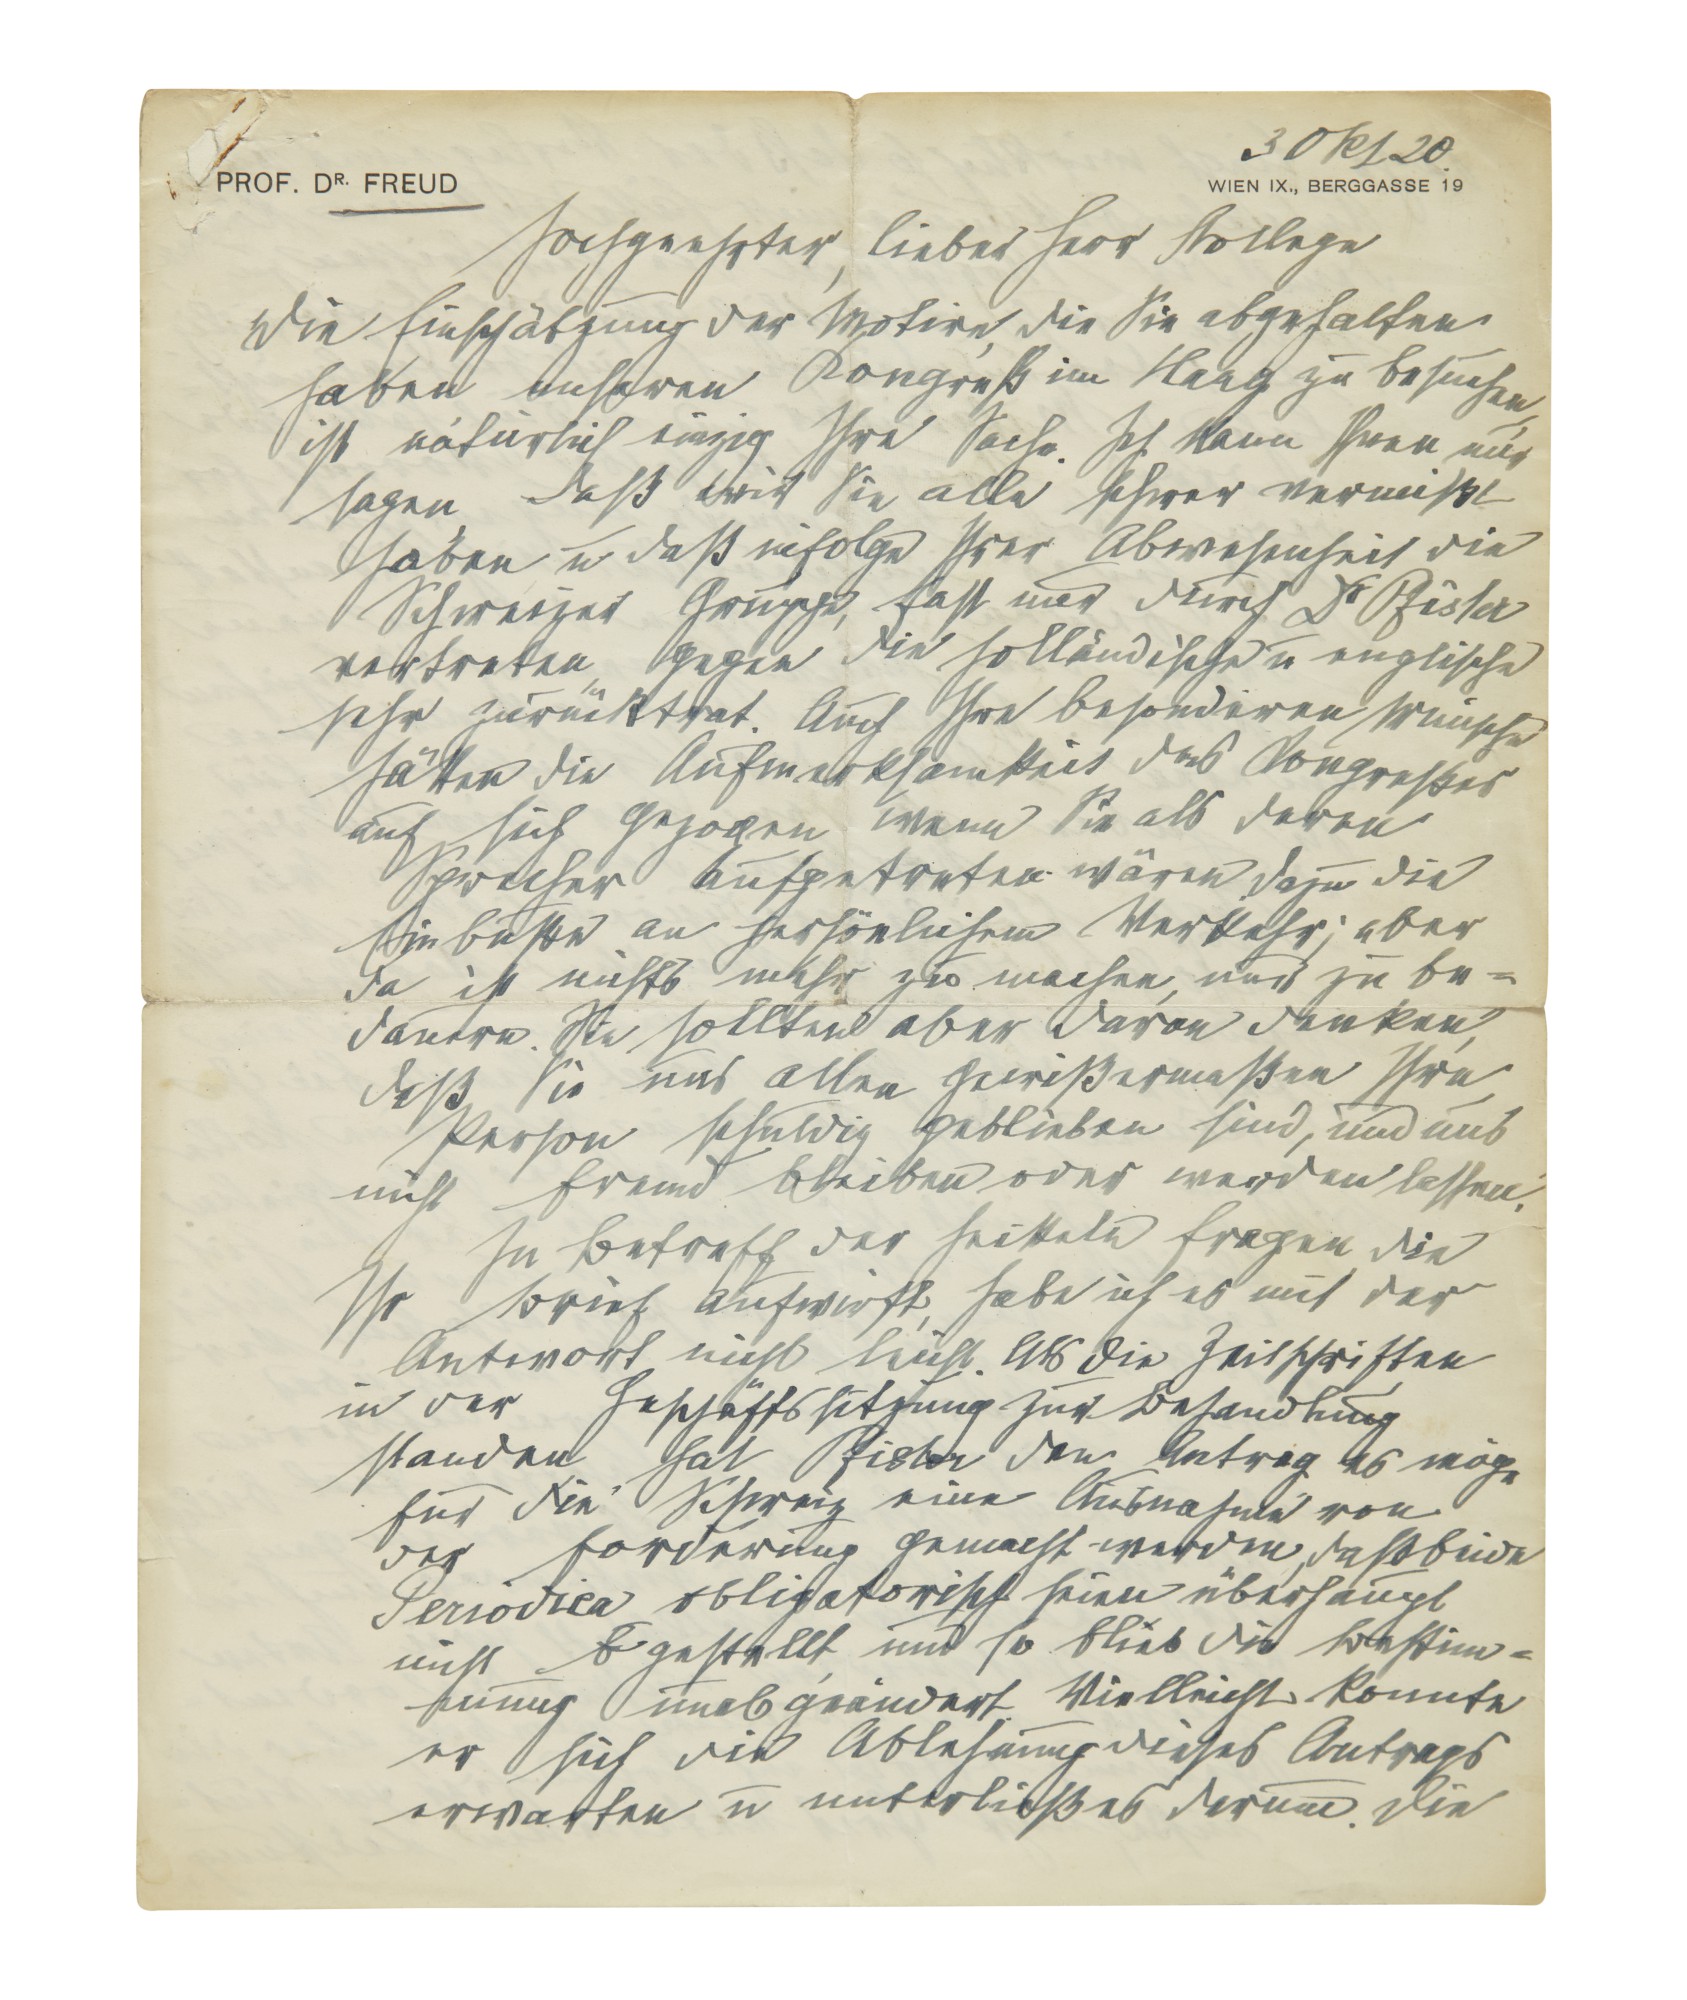 3 Okt 20
PROF. DR. FREUD
WIEN IX., BERGGASSE 19
Hochgeehrter, lieber Herr Kollege
Die Einschätzung der Motive, die Sie abgehalten
haben unseren Kongreß im Haag zu besuchen,
ist natürlich einzig Ihre Sache. Ich kann Ihnen nur
sagen, daß wir Sie alle schwer vermißt
haben u daß infolge Ihrer Abwesenheit die
Schweizer Gruppe, fast nur durch Dr Pfister
vertreten, gegen die holländische u englische
sehr zurücktrat. Auch Ihre besonderen Wünsche
hätten die Aufmerksamkeit des Kongreßes
auf sich gezogen, wenn Sie als deren
Sprecher aufgetreten wären, dazu die
Einbuße an persönlichem Verkehr; aber
da ist nichts mehr zu machen, nur zu be-
dauern. Sie sollten aber daran denken,
daß Sie uns allen gewißermaßen Ihre
Person schuldig geblieben sind, und uns
nicht fremd bleiben oder werden lassen.
In Betreff der heikeln Fragen, die
Ihr Brief aufwirft, habe ich es mit der
Antwort nicht leicht. Als die Zeitschriften
in der Geschäftssitzung zur Behandlung
standen, hat Pfister den Antrag es möge
für die Schweiz eine Ausnahme von
der Forderung gemacht werden, daß beide
Periodica obligatorisch seien überhaupt
nicht gestellt, und so blieb die Bestim-
mung unabgeändert. Vielleicht konnte
er sich die Ablehnung dieses Antrags
erwarten u unterließ es darum. Die